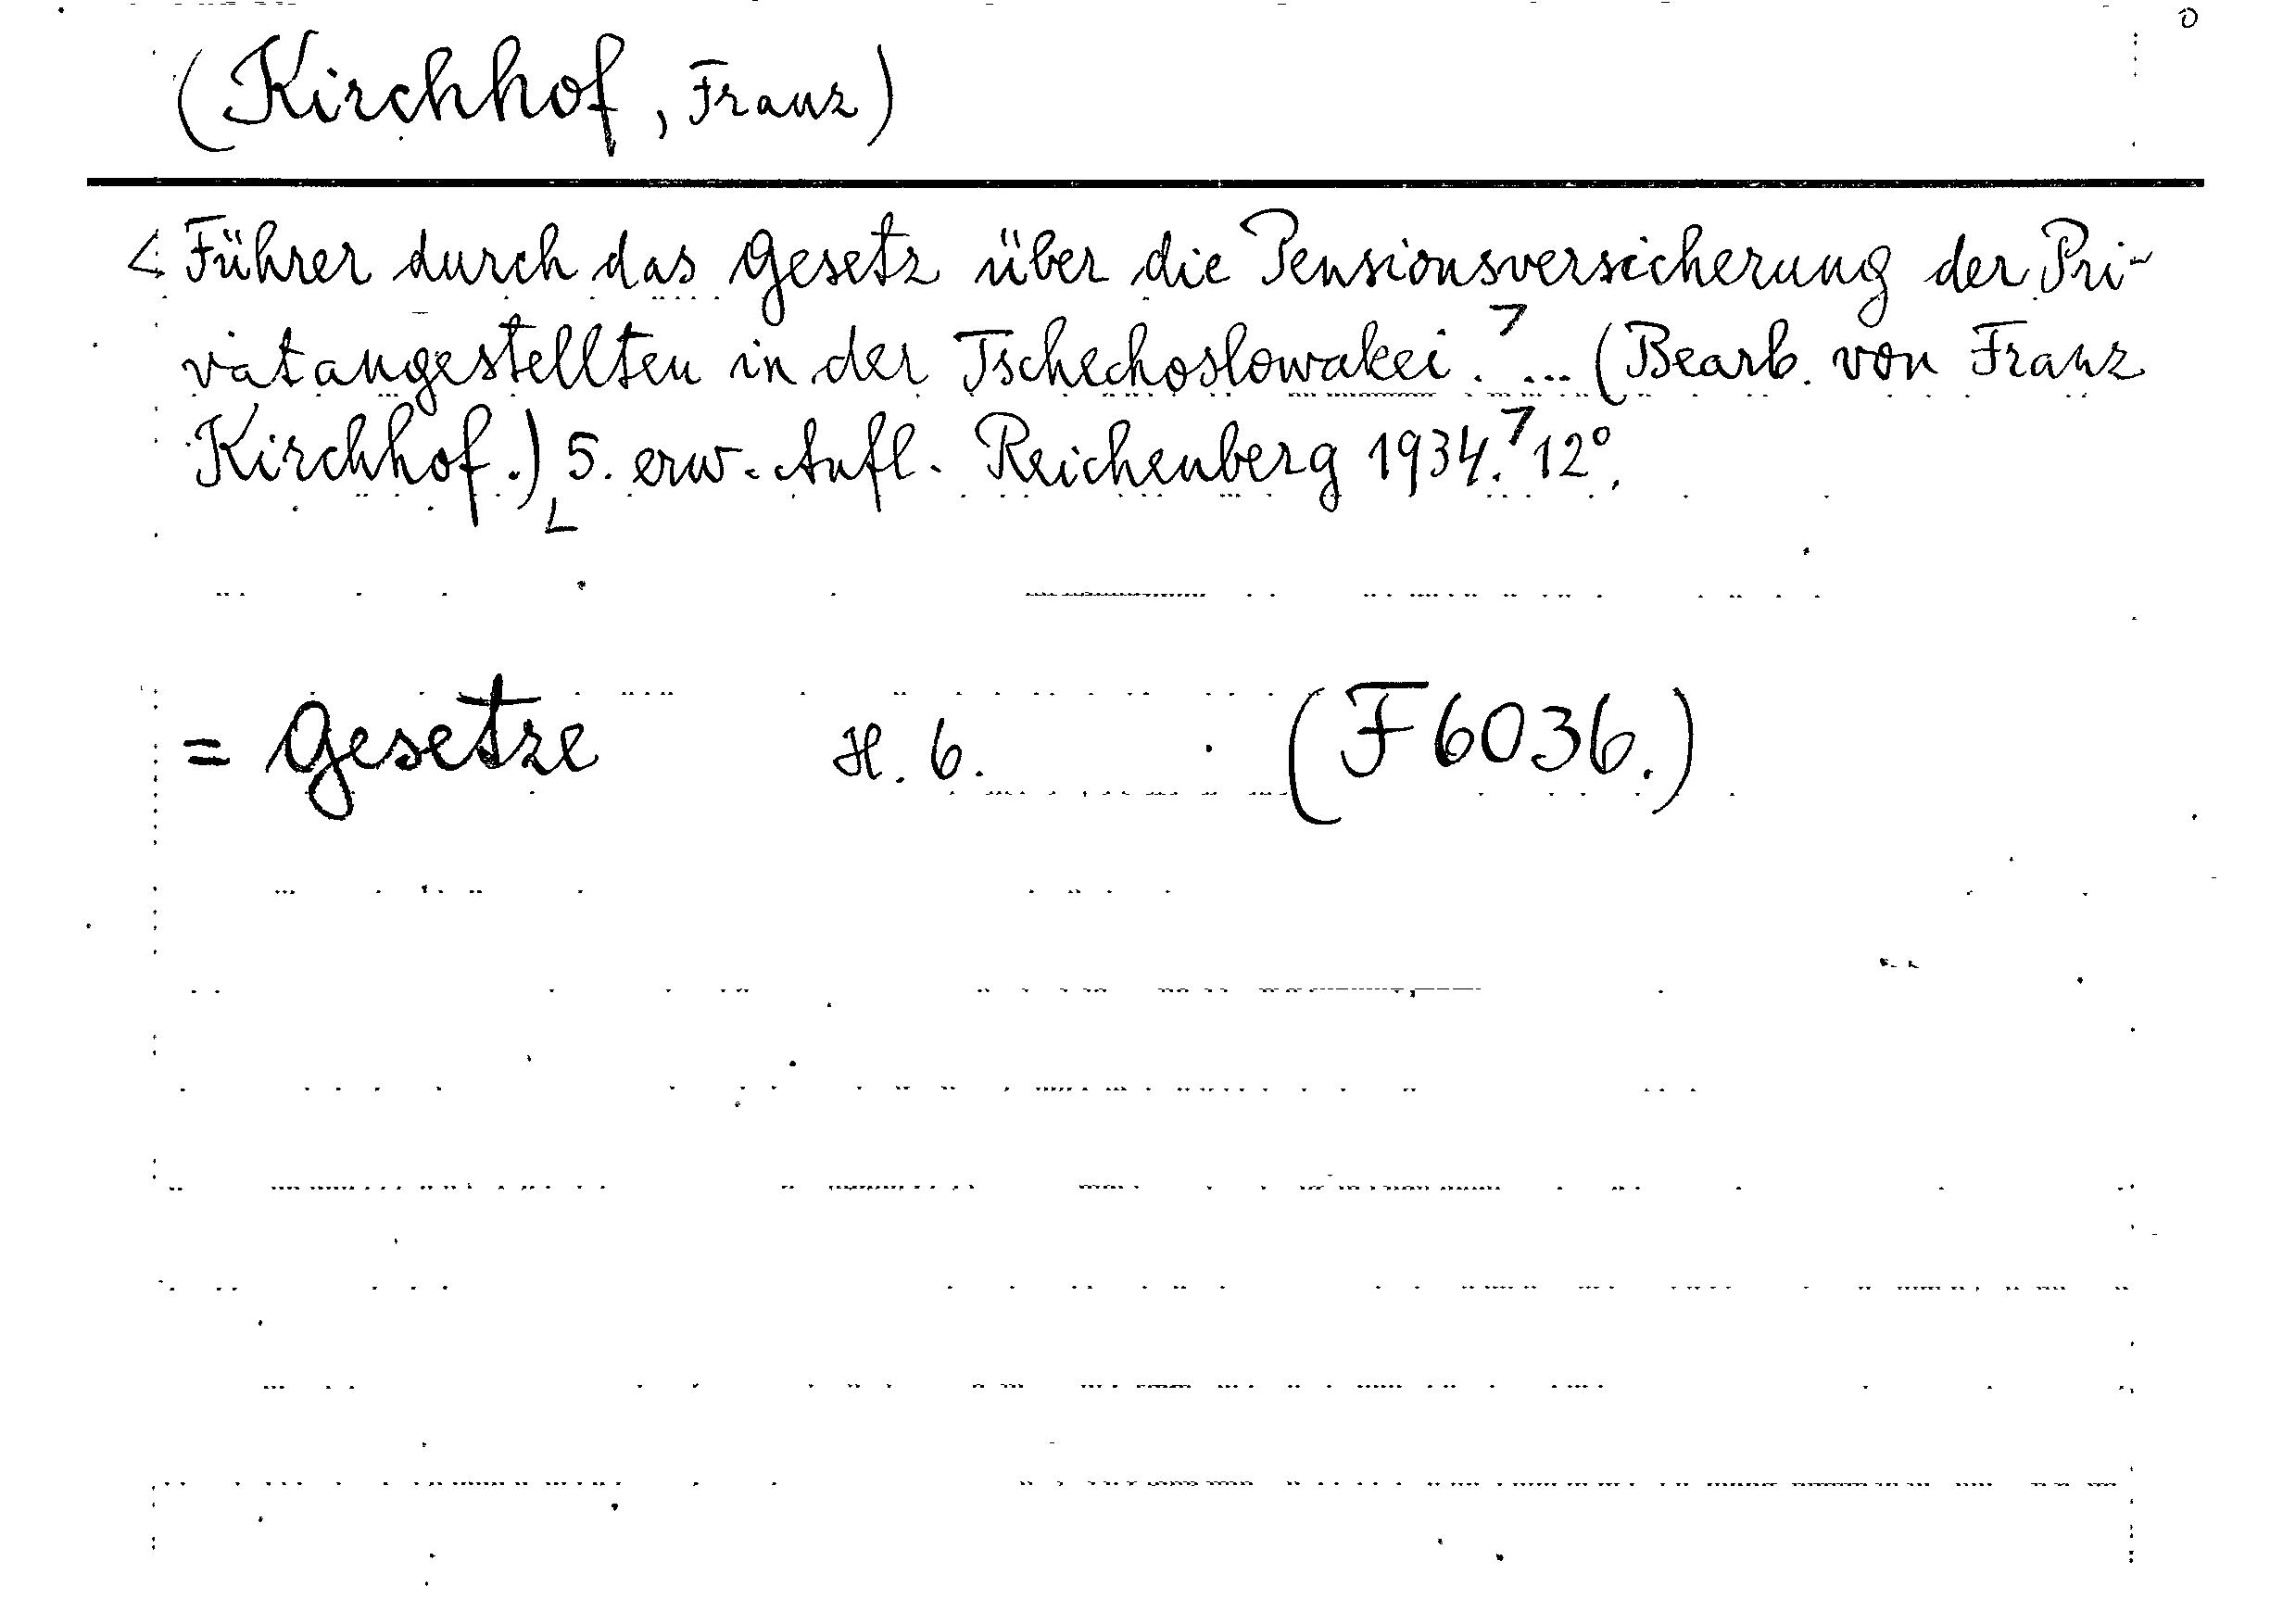 (Kirchhof, Franz)
< Führer durch das Gesetz über die Pensionsversicherung der Pri-
vatangestellten in der Tschechoslowakei. ... (Bearb. von Franz
Kirchhof.) 5. erw. Aufl. Reichenberg 1934. 12°.
= Gesetze H. 6. (F 6036.)